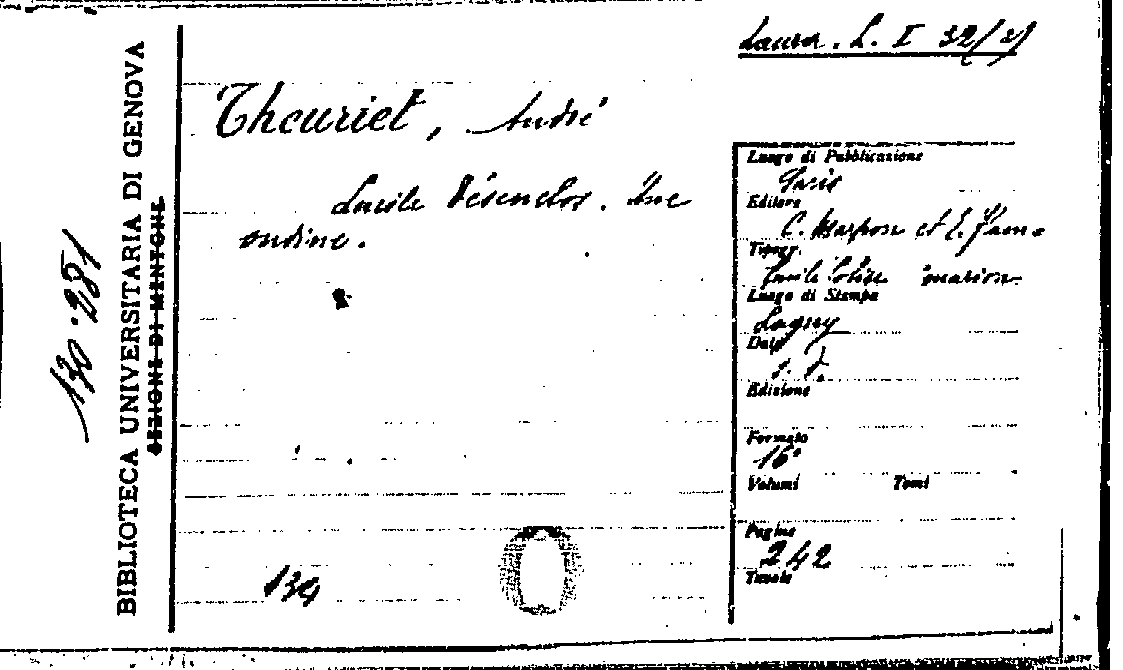 Laura. L. I 32/2)
Theuriet, André
Lucile Désenclos. Une
ondine.
BIBLIOTECA UNIVERSITARIA DI GENOVA
SEZIONE DI MENTONE
130.281
Luogo di Pubblicazione
Paris
Editore
C. Marpon et E. Flam-
Tipogr.
Emile Colin marion
Luogo di Stampa
Lagny
Data
s. d.
Edizione
Formato
16°
Volumi Tomi
Pagine
242
Tavole
139
O